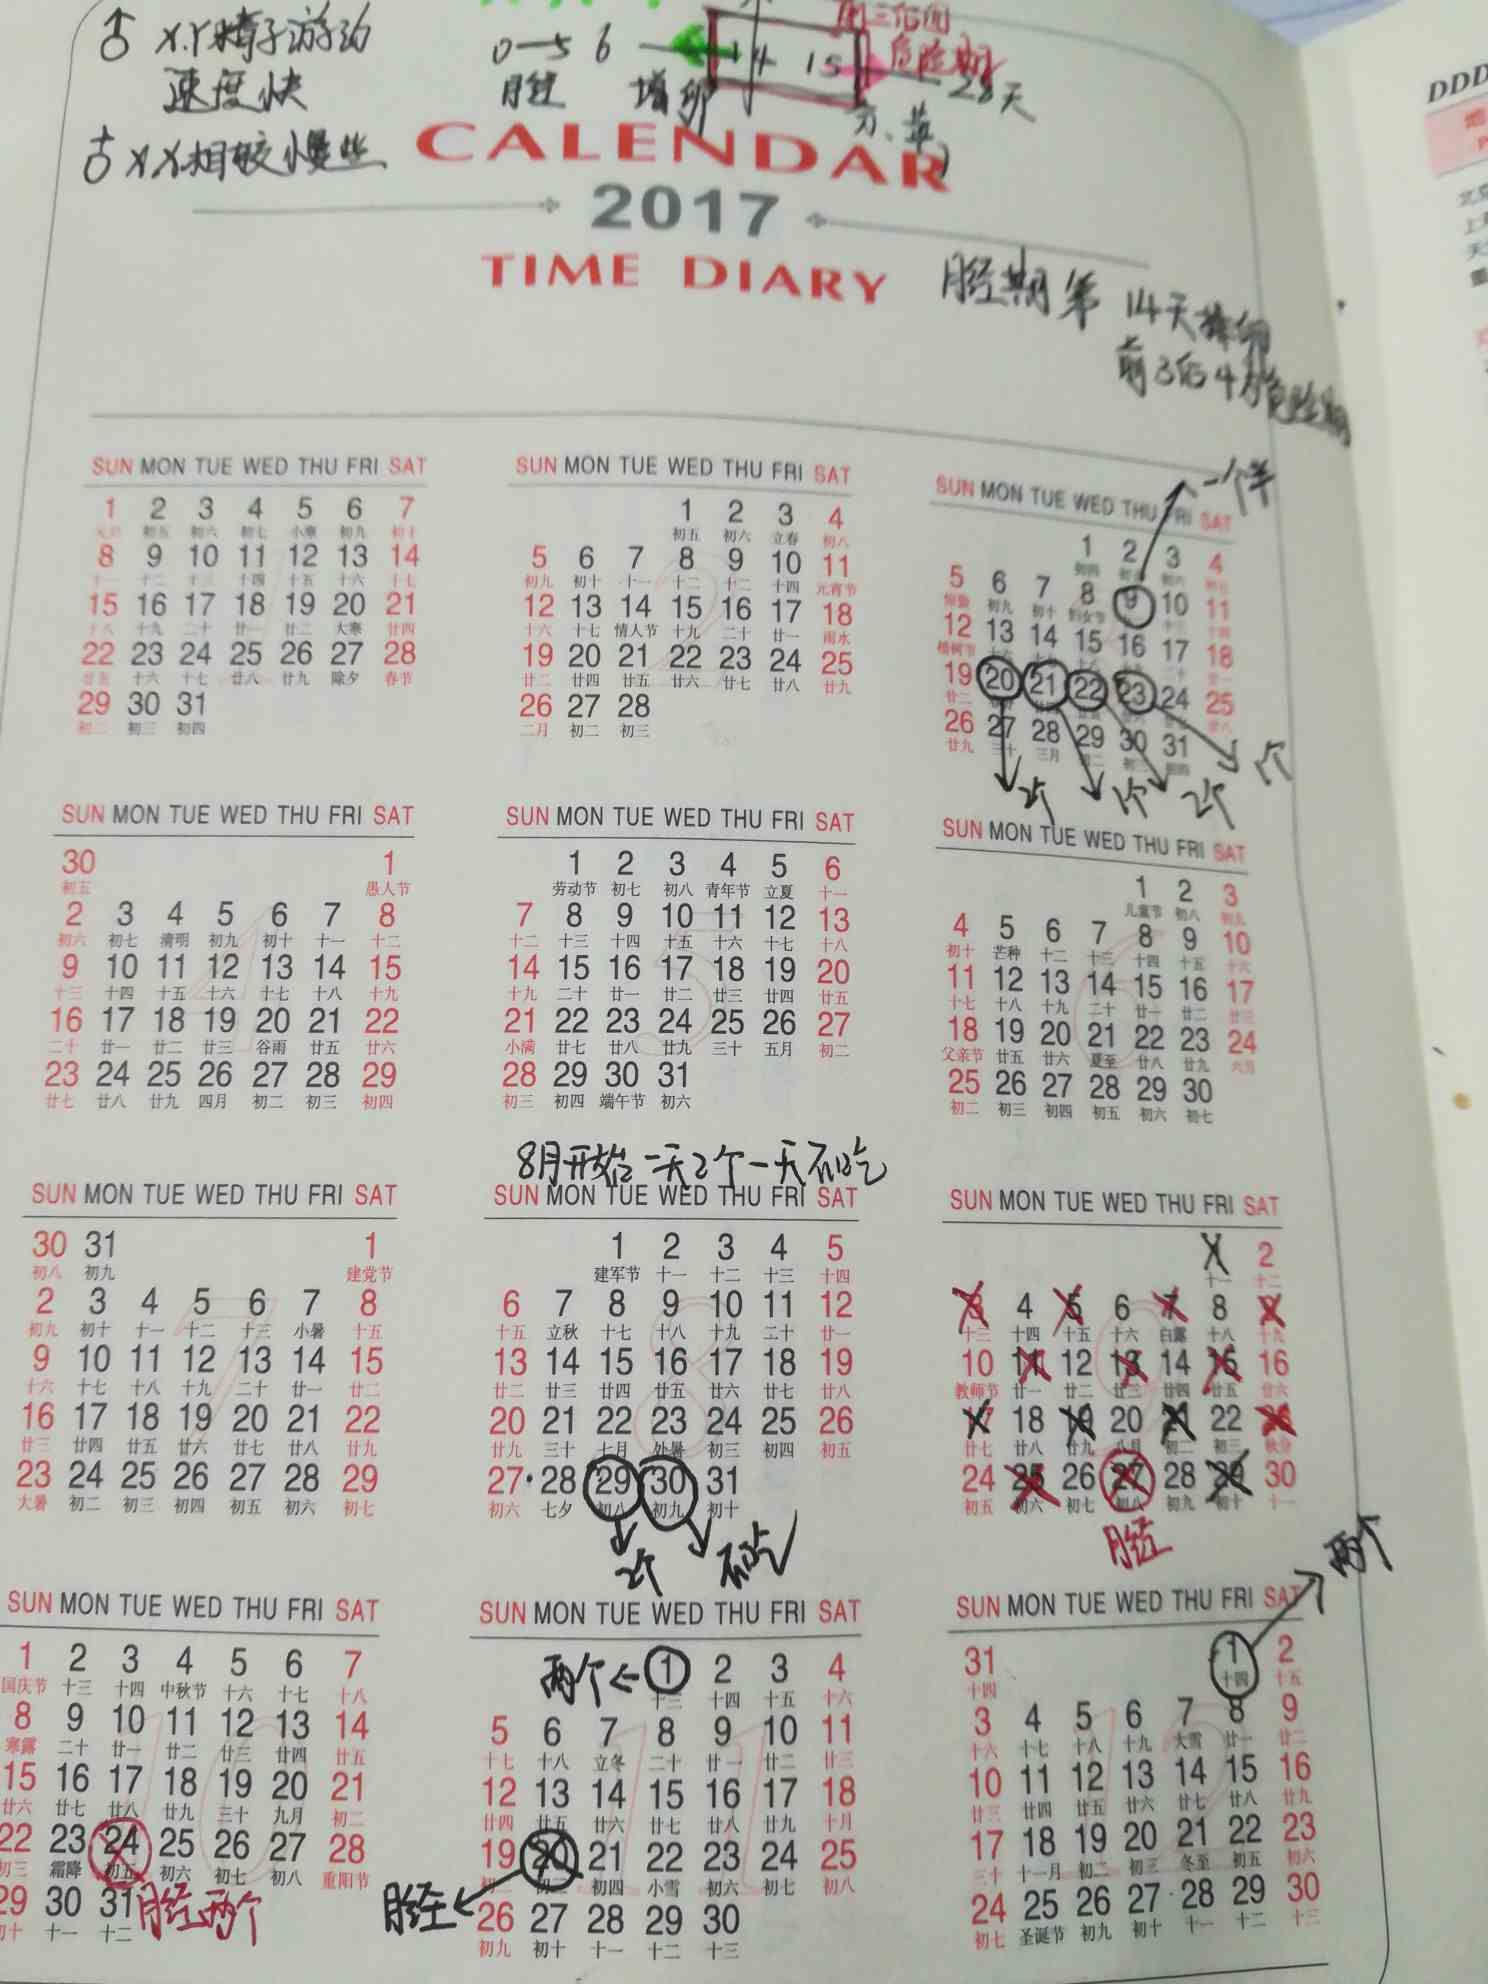 ♂ X.Y精子游动
速度快
♂ X.X相较慢些
0—5 6
月经 增卵
14 15
28天
危险期
CALENDAR
2017
TIME DIARY
月经期第14天排卵
前3后4为危险期
一个半
SUN MON TUE WED THU FRI SAT
1 2 3 4 5 6 7
元旦 初五 初六 初七 小寒 初九 初十
8 9 10 11 12 13 14
十一 十二 十三 十四 十五 十六 十七
15 16 17 18 19 20 21
十八 十九 二十 廿一 廿二 大寒 廿四
22 23 24 25 26 27 28
廿五 廿六 廿七 廿八 廿九 除夕 春节
29 30 31
初二 初三 初四
SUN MON TUE WED THU FRI SAT
1 2 3 4
初五 初六 立春 初八
5 6 7 8 9 10 11
初九 初十 十一 十二 十三 十四 元宵节
12 13 14 15 16 17 18
十六 十七 情人节 十九 二十 廿一 雨水
19 20 21 22 23 24 25
廿二 廿四 廿五 廿六 廿七 廿八 廿九
26 27 28
二月 初二 初三
SUN MON TUE WED THU FRI SAT
1 2 3 4
5 6 7 8 9 10 11
初九 初十 妇女节
12 13 14 15 16 17 18
植树节
19 20 21 22 23 24 25
26 27 28 29 30 31
廿九 三十 三月
2个 1个 2个 1个
SUN MON TUE WED THU FRI SAT
30 1
初五 愚人节
2 3 4 5 6 7 8
初六 初七 清明 初九 初十 十一 十二
9 10 11 12 13 14 15
十三 十四 十五 十六 十七 十八 十九
16 17 18 19 20 21 22
二十 廿一 廿二 廿三 谷雨 廿五 廿六
23 24 25 26 27 28 29
廿七 廿八 廿九 四月 初二 初三 初四
SUN MON TUE WED THU FRI SAT
1 2 3 4 5 6
劳动节 初七 初八 青年节 立夏 十一
7 8 9 10 11 12 13
十二 十三 十四 十五 十六 十七 十八
14 15 16 17 18 19 20
十九 二十 廿一 廿二 廿三 廿四 廿五
21 22 23 24 25 26 27
小满 廿七 廿八 廿九 三十 五月 初二
28 29 30 31
初三 初四 端午节 初六
SUN MON TUE WED THU FRI SAT
1 2 3
儿童节 初八 初九
4 5 6 7 8 9 10
初十 芒种 十二 十三 十四 十五 十六
11 12 13 14 15 16 17
十七 十八 十九 二十 廿一 廿二 廿三
18 19 20 21 22 23 24
父亲节 廿五 廿六 夏至 廿八 廿九 六月
25 26 27 28 29 30
初二 初三 初四 初五 初六 初七
8月开始一天2个一天不吃
SUN MON TUE WED THU FRI SAT
30 31 1
初八 初九 建党节
2 3 4 5 6 7 8
初九 初十 十一 十二 十三 小暑 十五
9 10 11 12 13 14 15
十六 十七 十八 十九 二十 廿一 廿二
16 17 18 19 20 21 22
廿三 廿四 廿五 廿六 廿七 廿八 廿九
23 24 25 26 27 28 29
大暑 初二 初三 初四 初五 初六 初七
SUN MON TUE WED THU FRI SAT
1 2 3 4 5
建军节 十一 十二 十三 十四
6 7 8 9 10 11 12
十五 立秋 十七 十八 十九 二十 廿一
13 14 15 16 17 18 19
廿二 廿三 廿四 廿五 廿六 廿七 廿八
20 21 22 23 24 25 26
廿九 三十 七月 处暑 初三 初四 初五
27 28 29 30 31
初六 七夕 初八 初九 初十
2个 不吃
SUN MON TUE WED THU FRI SAT
1 2
十一 十二
3 4 5 6 7 8 9
十三 十四 十五 十六 白露 十八 十九
10 11 12 13 14 15 16
教师节 廿一 廿二 廿三 廿四 廿五 廿六
17 18 19 20 21 22 23
廿七 廿八 廿九 八月 初二 初三 秋分
24 25 26 27 28 29 30
初五 初六 初七 初八 初九 初十 十一
月经
两个
SUN MON TUE WED THU FRI SAT
1 2 3 4 5 6 7
国庆节 十三 十四 中秋节 十六 十七 十八
8 9 10 11 12 13 14
寒露 二十 廿一 廿二 廿三 廿四 廿五
15 16 17 18 19 20 21
廿六 廿七 廿八 廿九 三十 九月 初二
22 23 24 25 26 27 28
初三 霜降 初五 初六 初七 初八 重阳节
29 30 31
初十 十一 十二
月经两个
SUN MON TUE WED THU FRI SAT
两个 1 2 3 4
十三 十四 十五 十六
5 6 7 8 9 10 11
十七 十八 立冬 二十 廿一 廿二 廿三
12 13 14 15 16 17 18
廿四 廿五 廿六 廿七 廿八 廿九 十月
19 20 21 22 23 24 25
初二 初三 初四 小雪 初六 初七 初八
月经
26 27 28 29 30
初九 初十 十一 十二 十三
SUN MON TUE WED THU FRI SAT
31 1 2
十四 十四 十五
3 4 5 6 7 8 9
十六 十七 十八 十九 大雪 廿一 廿二
10 11 12 13 14 15 16
廿三 廿四 廿五 廿六 廿七 廿八 廿九
17 18 19 20 21 22 23
三十 十一月 初二 初三 冬至 初五 初六
24 25 26 27 28 29 30
初七 圣诞节 初九 初十 十一 十二 十三
DDD